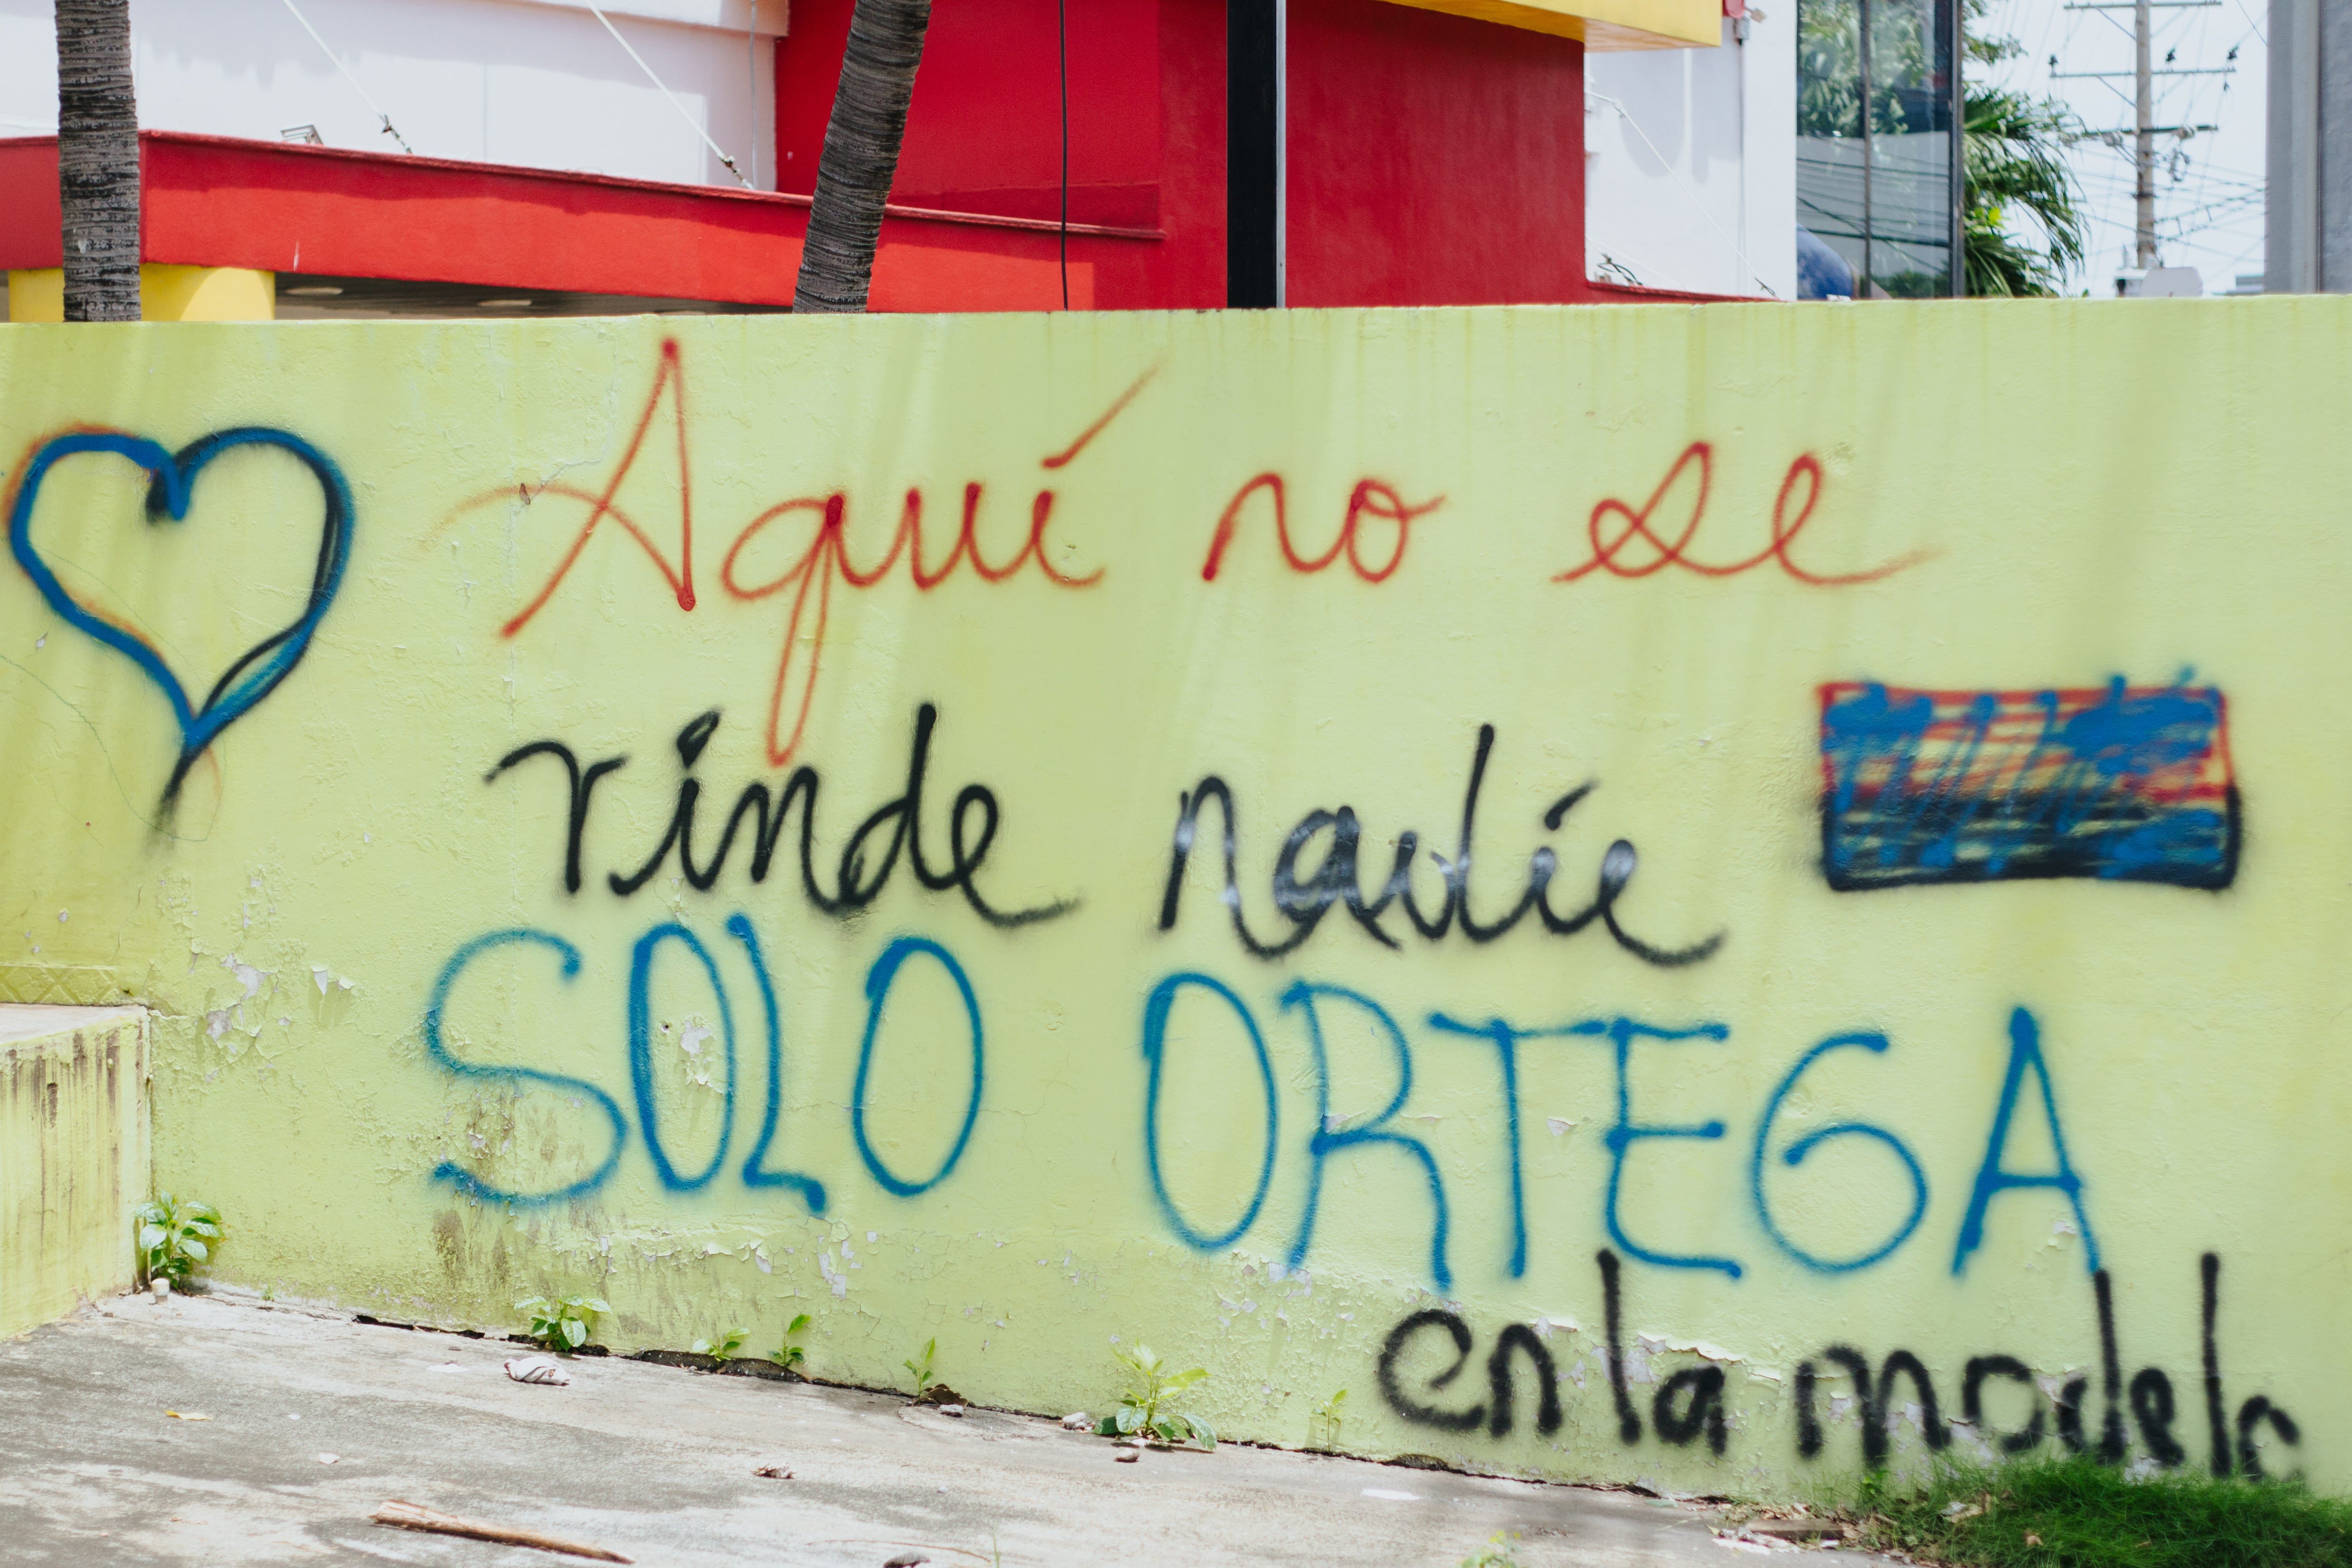 Aquí no se
rinde nadie
SOLO ORTEGA
en la modelo